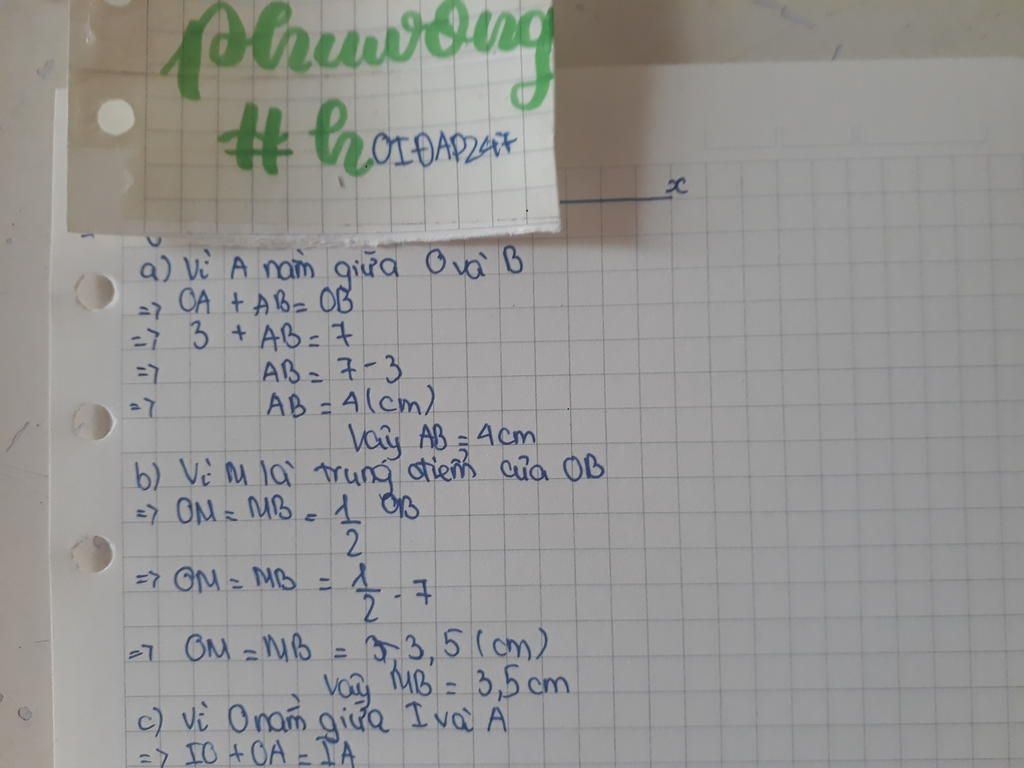 phương
# hOIĐAP247
x
a) Vì A nằm giữa O và B
=> OA + AB = OB
=> 3 + AB = 7
=> AB = 7 - 3
=> AB = 4 (cm)
Vậy AB = 4cm
b) Vì M là trung điểm của OB
=> OM = MB = 1/2 OB
=> OM = MB = 1/2 . 7
=> OM = MB = 3,5 (cm)
Vậy MB = 3,5 cm
c) Vì O nằm giữa I và A
=> IO + OA = IA